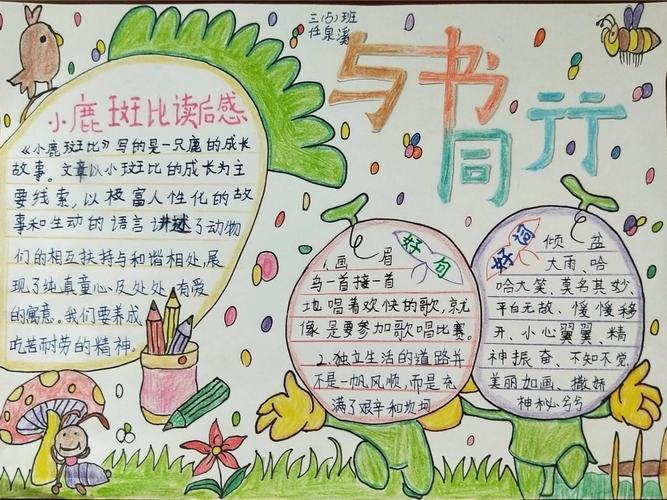 三(5)班
任泉溪
与书
同行
小鹿斑比读后感
《小鹿斑比》写的是一只鹿的成长
故事。文章以小斑比的成长为主
要线索,以极富人性化的故
事和生动的语言讲述了动物
们的相互扶持与和谐相处,展
现了纯真童心及处处有爱
的寓意。我们要养成
吃苦而劳的精神。
好句
1.画眉
鸟一首接一首
地唱着欢快的歌,就
像是要参加歌唱比赛。
2.独立生活的道路并
不是一帆风顺,而是充
满了艰辛和坎坷
好词
倾盆
大雨、哈
哈大笑、莫名其妙、
平白无故、慢慢移
开、小心翼翼、精
神振奋、不知不觉、
美丽如画、撒娇
神秘兮兮